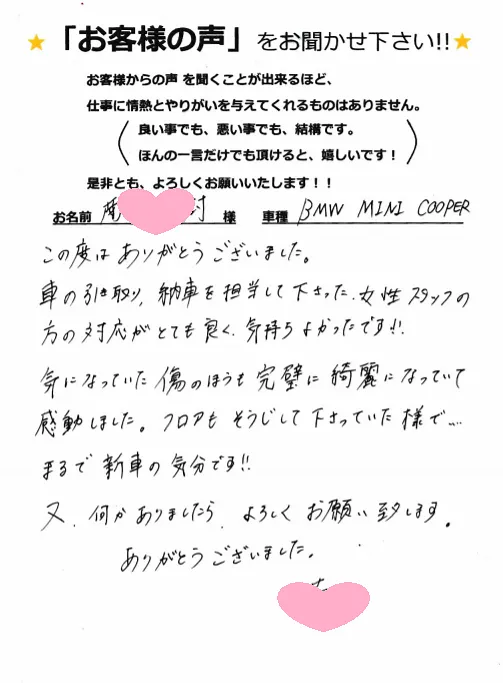 ★「お客様の声」をお聞かせ下さい!!★
お客様からの声 を聞くことが出来るほど、
仕事に情熱とやりがいを与えてくれるものはありません。
良い事でも、悪い事でも、結構です。
ほんの一言だけでも頂けると、嬉しいです！
是非とも、よろしくお願いいたします！！
お名前 村 様 車種 BMW MINI COOPER
この度は ありがとうございました。
車の引き取り, 納車を担当して下さった、女性スタッフの
方の対応がとても良く、気持ちよかったです!!
気になっていた傷のほうも完璧に綺麗になっていて
感動しました。フロアもそうじして下さっていた様で…
まるで新車の気分です!!
又、何かありましたら、よろしくお願い致します。
ありがとうございました。